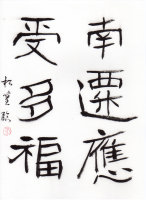 南遷應
受多福